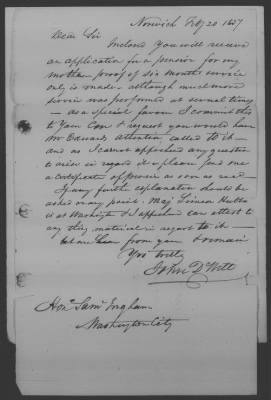 Norwich Feby 20 1837
Dear Sir
Inclosed you will receive
an application for a pension for my
mother proof of six months service
only is made - although much more
service was performed at several times
- as a special favor I commit this
to Your care & request you would have
Mr Edwards attention called to it -
and as I cannot apprehend any question
to arise in regard to it please send me
a certificate of pension as soon as
If any further explanation should be
asked on any point. Maj Simeon
is at Washington & I apprehend can attest to
any thing material in regard to it -
let me hear from you & remain
Yrs truly
John DWitt
Hon. Saml Ingham
Washington City